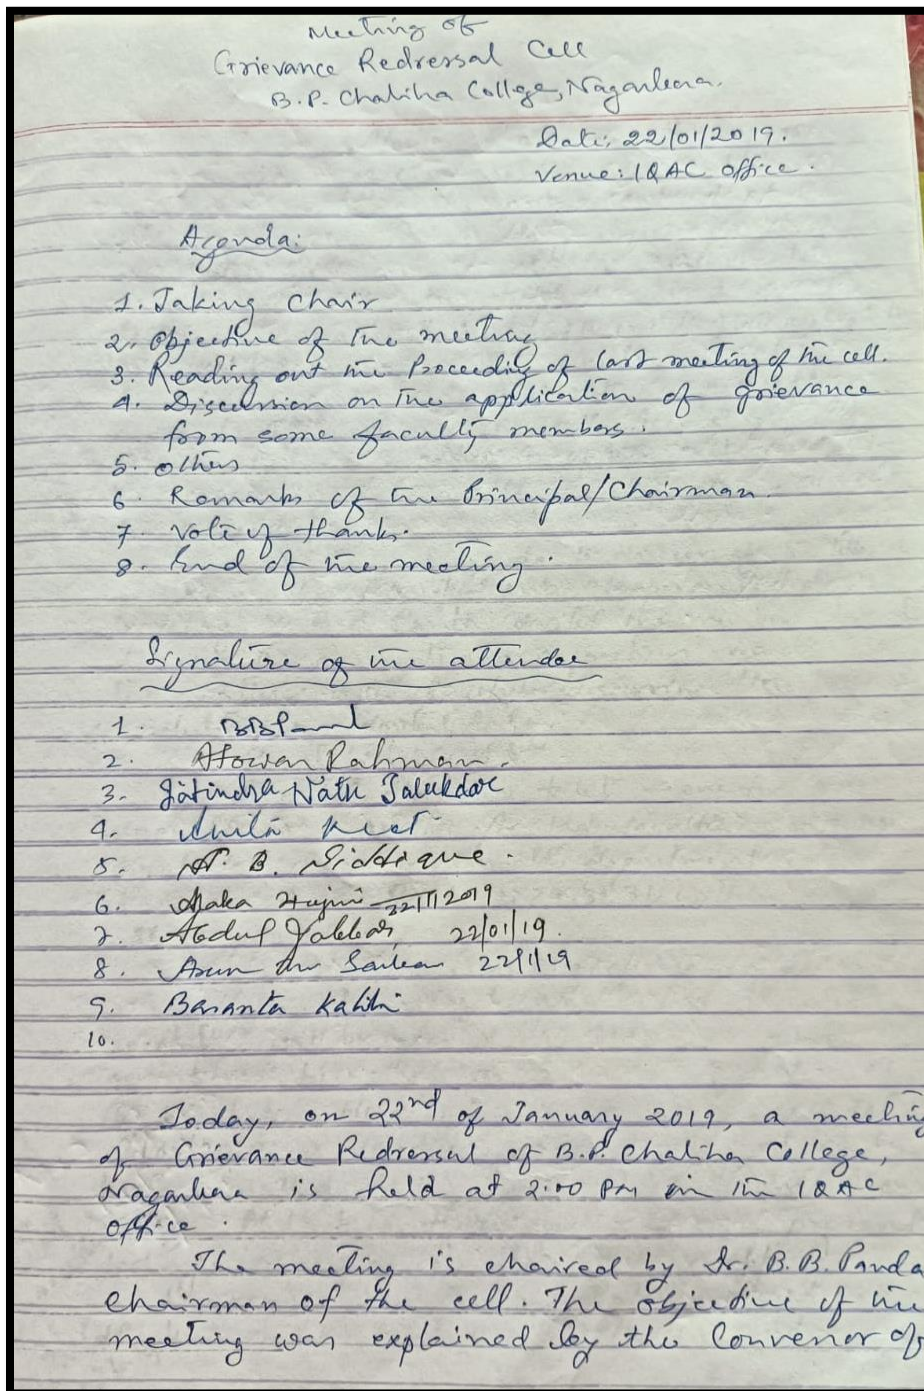 Meeting of
Grievance Redressal Cell
B.P. Chaliha College, Nagarbera.
Date: 22/01/2019.
Venue: IQAC office.
Agenda:
1. Taking Chair
2. Objective of the meeting
3. Reading out the Proceeding of last meeting of the cell.
4. Discussion on the application of grievance
from some faculty members.
5. Others
6. Remarks of the Principal/Chairman.
7. Vote of thanks.
8. End of the meeting.
Signature of the attendee
1.
2. Atowar Rahman.
3. Jatindra Nath Talukdar
4. Anita
5. N. B. Siddique.
6. 22/1/2019
7. Abdul Jabbar 22/01/19.
8. 22/1/19
9. Basanta Kalita
10.
Today, on 22nd of January 2019, a meeting
of Grievance Redressal of B.P. Chaliha College,
Nagarbera is held at 2:00 PM in the IQAC
office.
The meeting is chaired by Dr. B.B. Panda
chairman of the cell. The objective of the
meeting was explained by the Convenor of